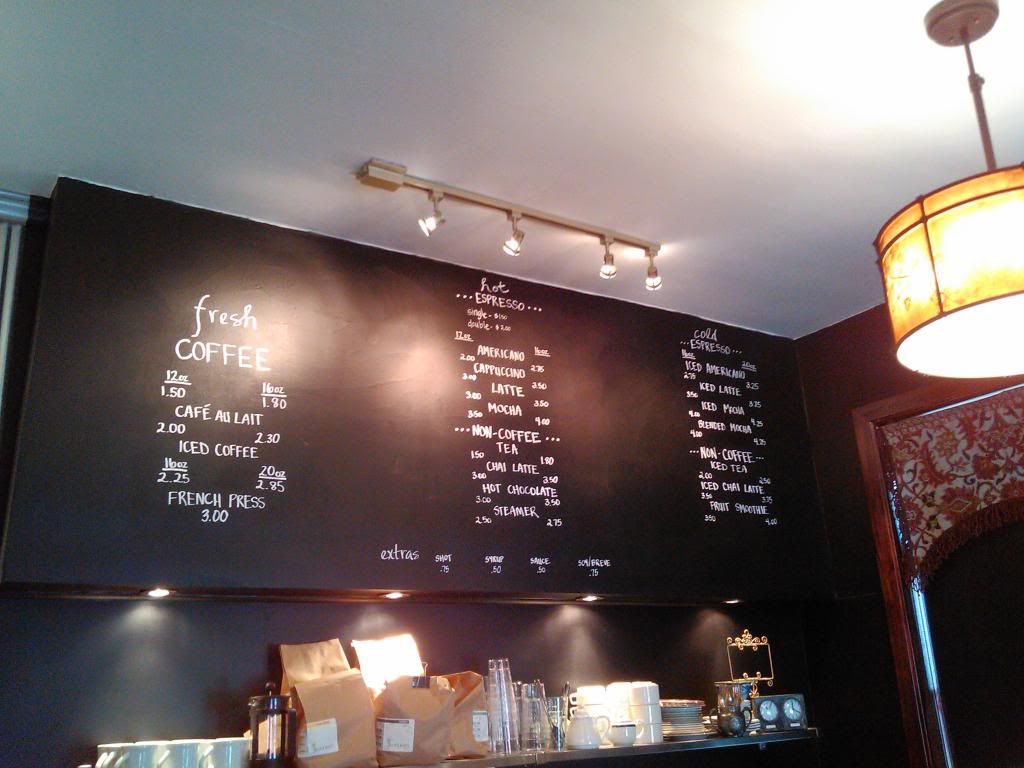 fresh
COFFEE
12oz 16oz
1.50 1.80
CAFÉ AU LAIT
2.00 2.30
ICED COFFEE
16oz 20oz
2.25 2.85
FRENCH PRESS
3.00
hot
...ESPRESSO...
single - $1.50
double - $2.00
12oz 16oz
AMERICANO
2.00 2.75
CAPPUCCINO
3.00 3.50
LATTE
3.00 3.50
MOCHA
3.50 4.00
...NON-COFFEE...
TEA
1.50 1.80
CHAI LATTE
3.00 3.50
HOT CHOCOLATE
3.00 3.50
STEAMER
2.50 2.75
cold
...ESPRESSO...
16oz 20oz
ICED AMERICANO
2.75 3.25
ICED LATTE
3.50 3.75
ICED MOCHA
4.00 4.25
BLENDED MOCHA
4.00 4.75
...NON-COFFEE...
ICED TEA
2.00 2.50
ICED CHAI LATTE
3.50 3.75
FRUIT SMOOTHIE
3.50 4.00
extras SHOT SYRUP SAUCE SOY/BREVE
.75 .50 .50 .75